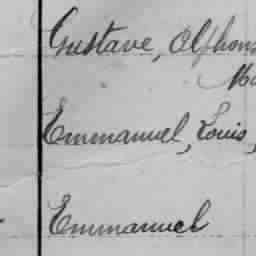 Gustave, Alphons
Ma
Emmanuel, Louis,
Emmanuel